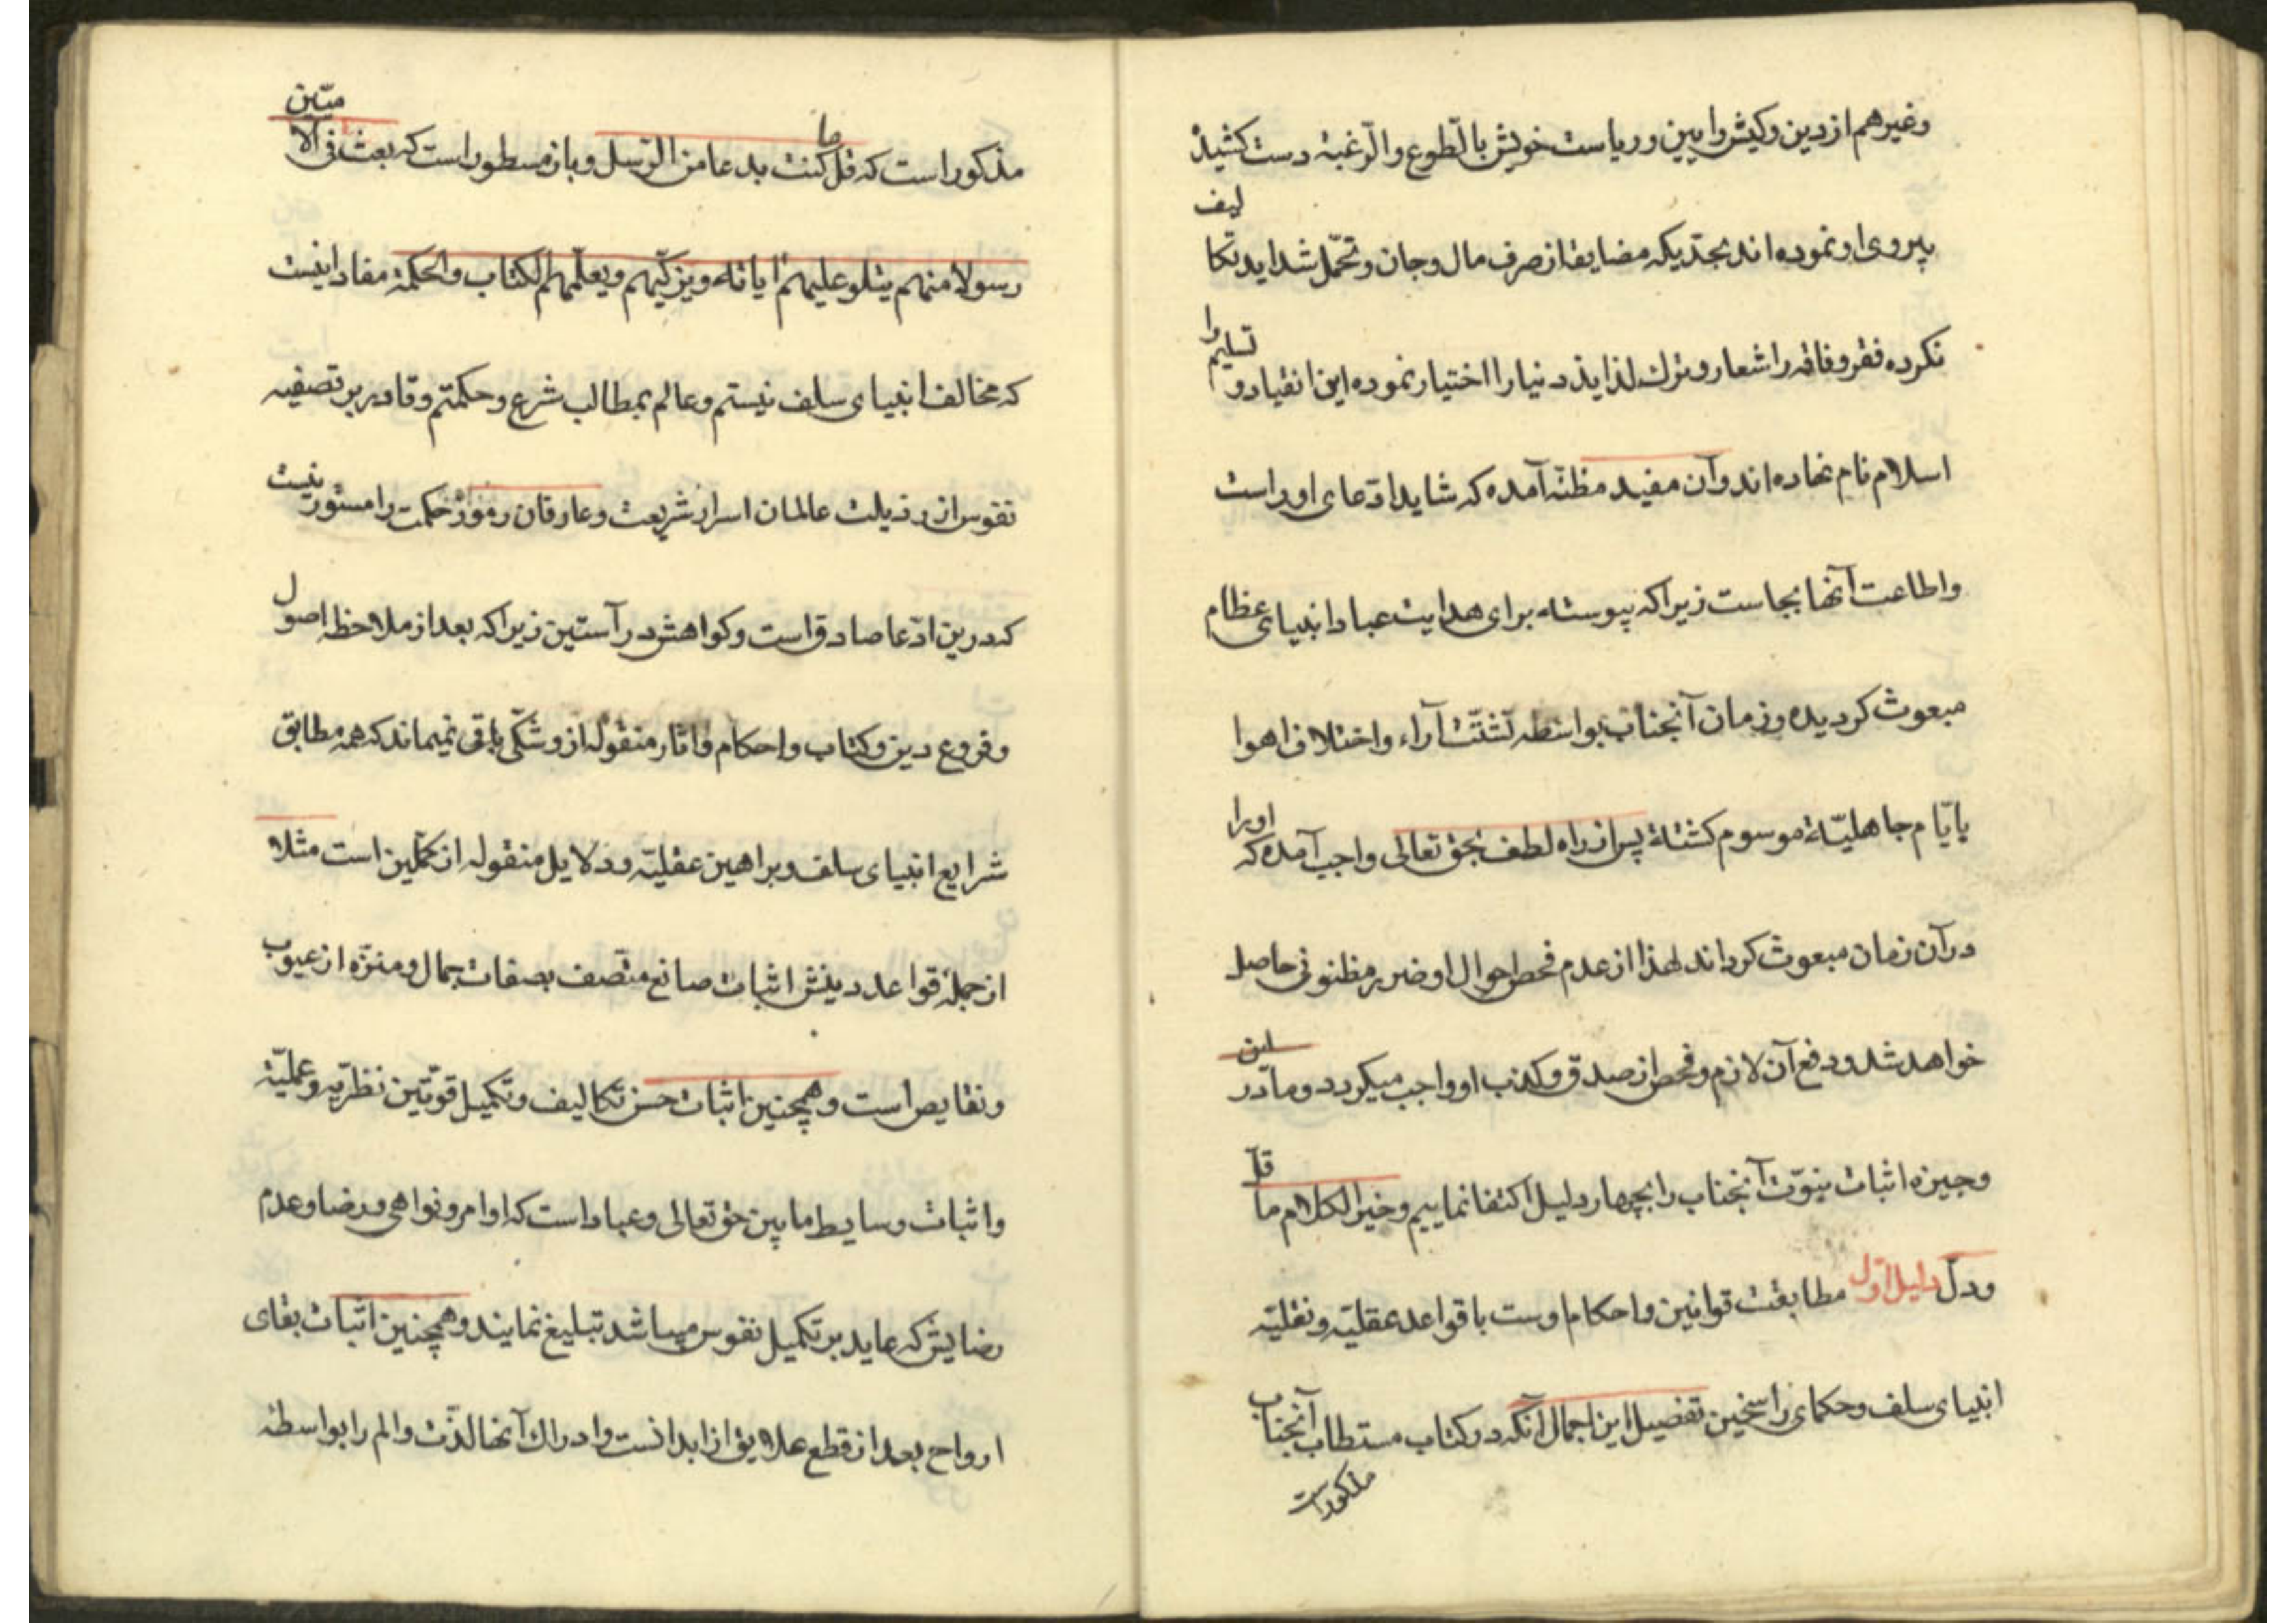 وغیرهم از دین وکیش وآیین وریاست خویش بالطّوع والرّغبة دست کشیده
پیروی او نموده اند بحدّیکه مضایقه از صرف مال وجان وتحمّل شداید تکالیف
نکرده فقر وفاقه را شعار وترك لذاید دنیا را اختیار نموده این انقیاد وتسلیم را
اسلام نام نهاده اند وآن مفید مظنّه آمده که شاید ادّعای او راست
واطاعت آنها بجاست زیرا که پیوسته برای هدایت عباد انبیای عظام
مبعوث کردیده وزمان آنجناب بواسطه تشتّت آراء واختلاف اهوا
بایّام جاهلیّة موسوم کشته پس از راه لطف بحق تعالی واجب آمده که او را
در آن زمان مبعوث کرداند لهذا از عدم فحص احوال او ضرر مظنونی حاصل
خواهد شد ودفع آن لازم وفحص از صدق وکذب او واجب میکردد وما در این
وجیزه اثبات نبوّت آنجناب را بچهار دلیل اکتفا نماییم وخیر الکلام ما قلّ
ودلّ دلیل اوّل مطابقت قوانین واحکام اوست با قواعد عقلیّه ونقلیّه
انبیای سلف وحکمای راسخین تفصیل این اجمال آنکه در کتاب مستطاب آنجناب
مذکور است
مذکور است که قل ما کنت بدعا من الرّسل وباز مسطور است که بعث فی الامّیّین
رسولا منهم یتلو علیهم ایاته ویزکّیهم ویعلّمهم الکتاب والحکمة مفاد اینست
که مخالف انبیای سلف نیستم وعالم بمطالب شرع وحکمتم وقادر بر تصفیه
نفوس از رذیلت عالمان اسرار شریعت وعارفان رموز حکمت را مستور نیست
که درین ادّعا صادق است وکواهش در آستین زیرا که بعد از ملاحظه اصول
وفروع دین وکتاب واحکام واثار منقوله از او شکّی باقی نمیماند که همه مطابق
شرایع انبیای سلف وبراهین عقلیّه ودلایل منقوله از مکمّلین است مثلا
از جمله قواعد دینش اثبات صانع متّصف بصفات جمال ومنزّه از عیوب
ونقایص است وهمچنین اثبات حسن تکالیف وتکمیل قوّتین نظریّه وعملیّة
واثبات وسایط ما بین حق تعالی وعباد است که اوامر ونواهی ورضا وعدم
رضایش که عاید بر تکمیل نفوس میباشد تبلیغ نمایند وهمچنین اثبات بقای
ارواح بعد از قطع علایق از ابدانست وادراك آنها لذّت والم را بواسطه